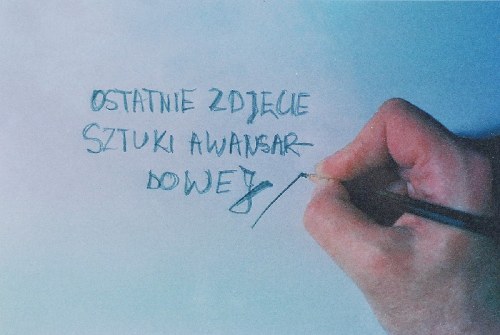 OSTATNIE ZDJĘCIE
SZTUKI AWANGAR-
DOWEJ